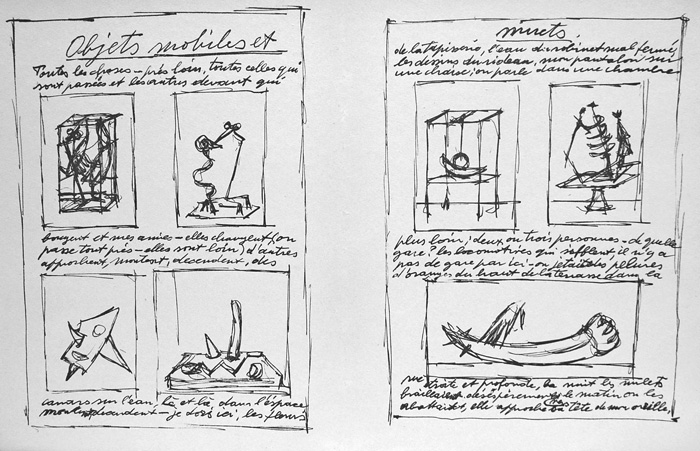 Objets mobiles et
Toutes les choses – près, loin, toutes celles qui
sont passées et les autres devant qui
bougent et mes amies – elles changent (on
passe tout près – elles sont loin) d'autres
approchent, montent, descendent, des
canards sur l'eau, là et là, dans l'espace
montent, descendent – je dors ici, les fleurs
muets.
de la tapisserie, l'eau du robinet mal fermé,
les dessins du rideau, mon pantalon sur
une chaise, on parle dans une chambre
plus loin; deux ou trois personnes – de quelle
gare? les locomotives qui sifflent, il n'y a
pas de gare par ici – on jetait des pelures
d'oranges du haut de la terrasse dans la
rue étroite et profonde, la nuit les mulets
braillaient désespérement le matin on les
abattait, elle approche sa tête de mon oreille,